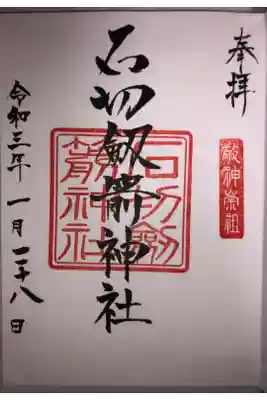 奉拝
敬神崇祖
石切劔箭神社
石切劔
箭神社
令和三年 一月二十八日